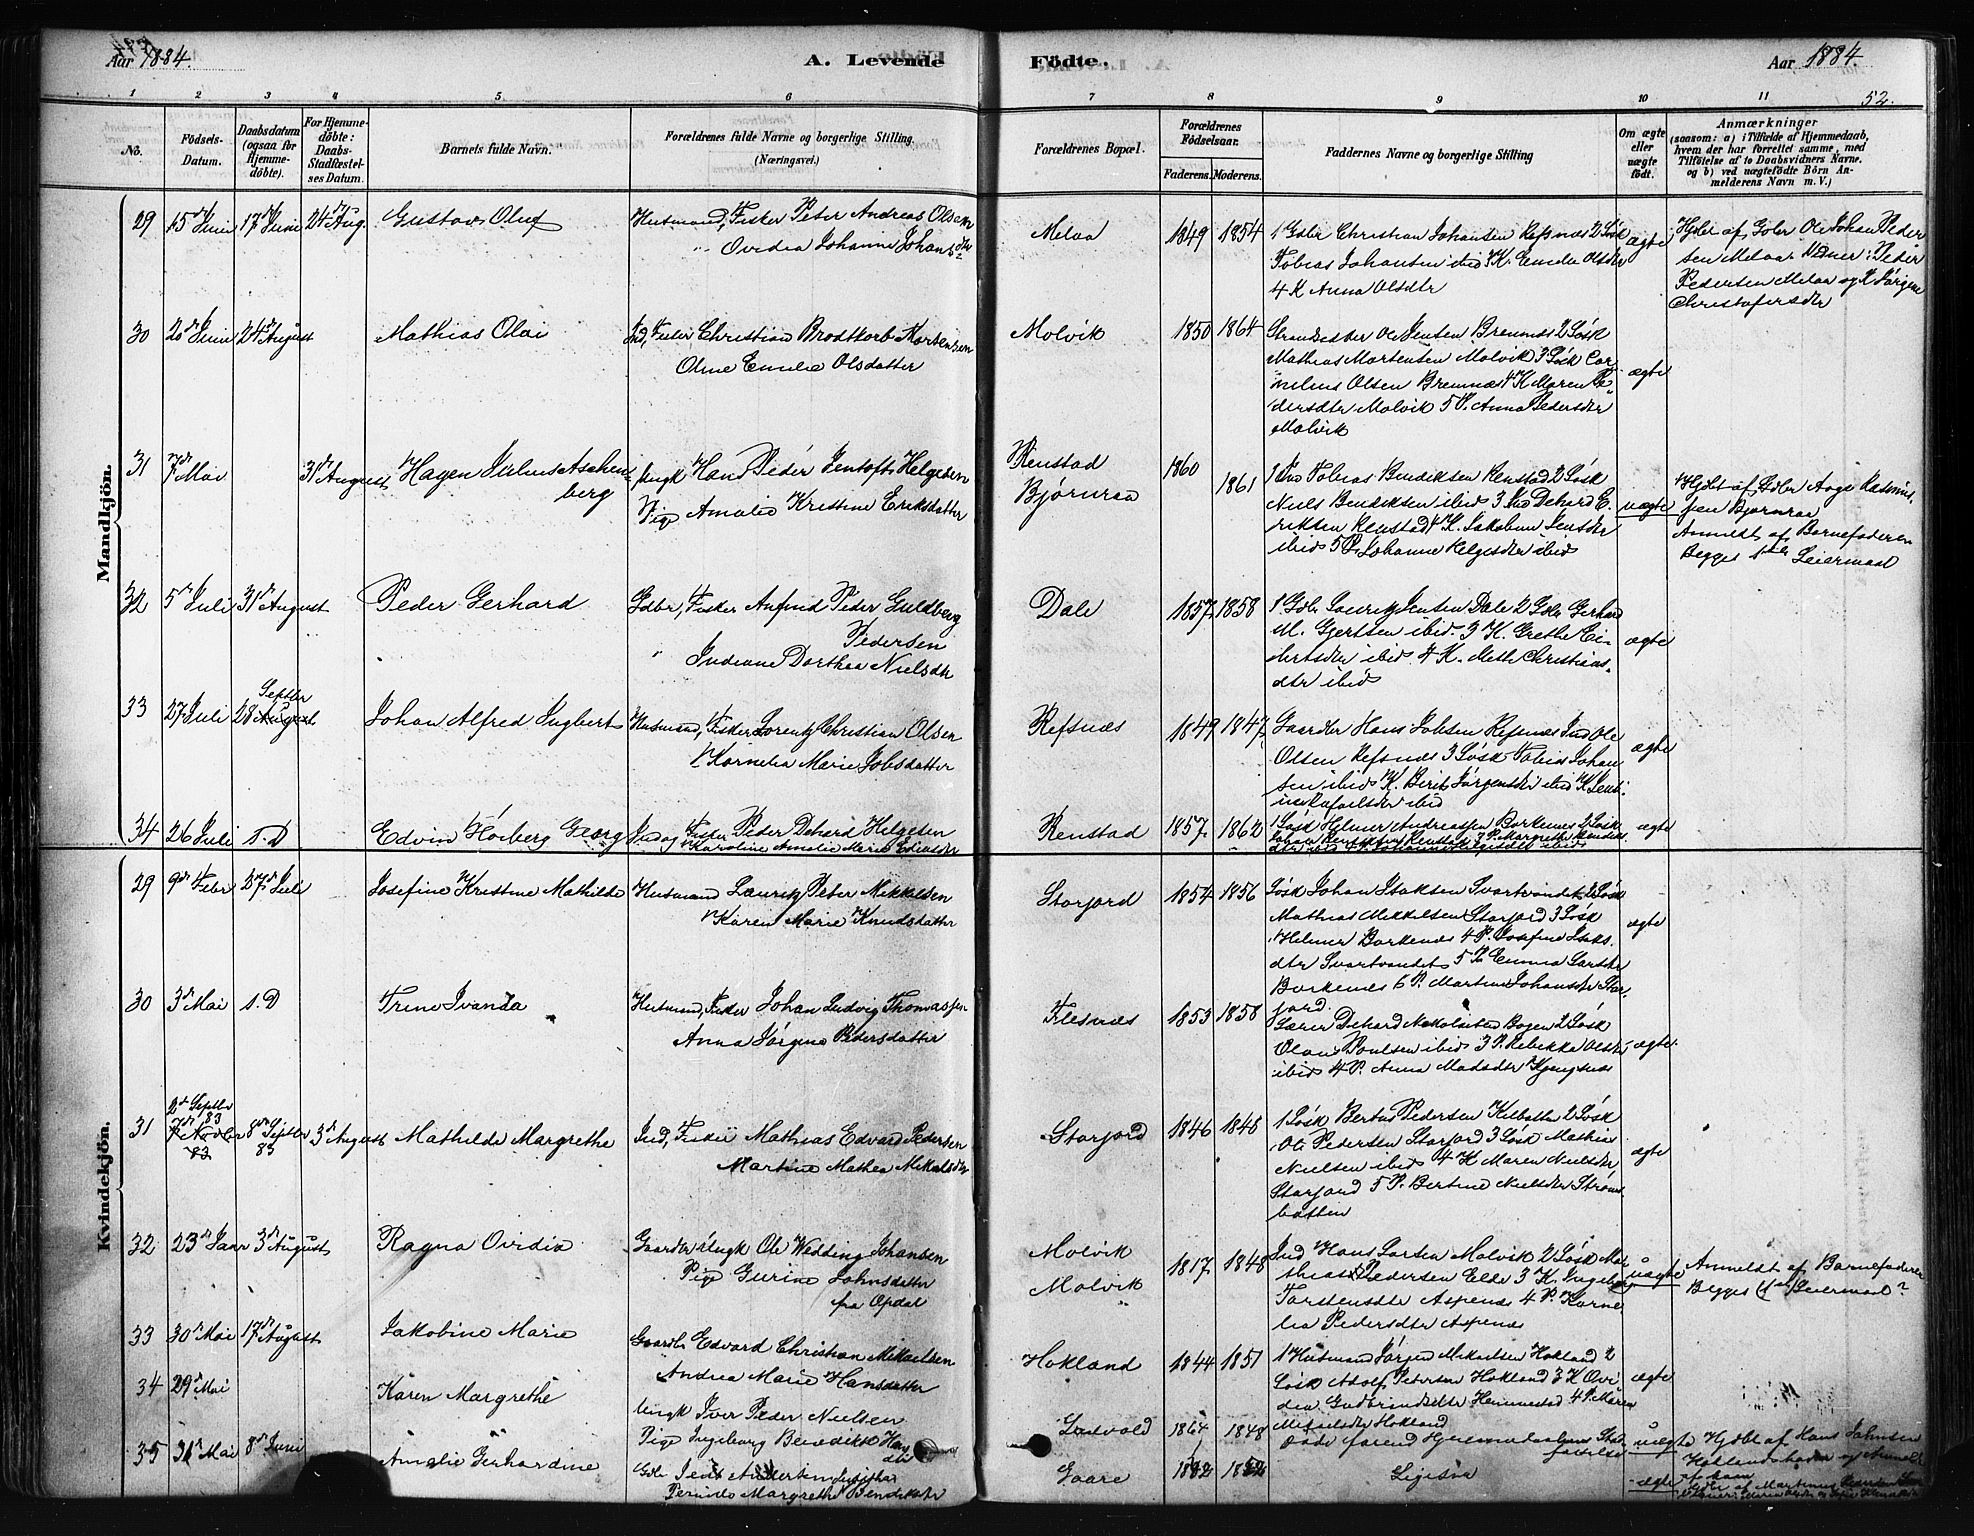 Aar 1884.
A. Levende
Födte.
Aar 1884.
52.
1 2 3 4 5 6 7 8 9 10 11
No.
Födsels-Datum.
Daabsdatum (ogsaa for Hjemmedöbte).
For Hjemmedöbte: Daabs-Stadfæstelses Datum.
Barnets fulde Navn.
Forældrenes fulde Navne og borgerlige Stilling. (Næringsvei.)
Forældrenes Bopæl.
Forældrenes Födselsaar. Faderens. Moderens.
Faddernes Navne og borgerlige Stilling
Om ægte eller uægte födt.
Anmærkninger
(saasom: a) i Tilfælde af Hjemmedaab,
hvem der har forrettet samme, med
Tilföielse af to Daabsvidners Navne.
og b) ved uægtefödte Börn An-
melderens Navn m. V.)
Mandkjön.
29 15d Juni 17d Juni 24d Aug. Gustav Oluf
Husmand, Fisker Peter Andreas Olsen
Ovidia Johanne Johansdtr
Melaa 1849 1854
1 Gbr Christian Johansen Refsnæs 2 Løsk
Tobias Johansen ibid 3 K. Emelie Olsdtr
4 K Anna Olsdtr
ægte
Hjdbt af Gbr Ole Johan Peder
sen Melaa. Vidner: Peder
Pedersen Melaa og K Jørgine
Christofersdtr
30 20d Juni 24d August Mathias Olai
Ind, Fisker Christian Brodtkorb Mortensen
Oline Emelie Olsdatter
Molvik 1850 1864
Ole Jensen Bremnæs 2 Løsk
Mathias Mortensen Molvik 3 Løsk Cor
nelius Olsen Bremnæs 4 K Maren Pe
dersdtr Molvik 5 P. Anna Pedersdtr
Molvik
ægte
31 7d Mai 31d August Hagen Julius Aschen
berg
Ungk Hans Peder Jentoft Helgesen
Pige Amalie Kristine Eriksdatter
Renstad
Bjørnraa
1860
1861
1 Ind Tobias Bendiksen Renstad 2 Løsk
Niels Bendiksen ibid 3 Ind Dehard E
riksen Renstad 4 K. Jakobine Jensdtr
ibid 5 P. Johanne Helgesdtr ibid
uægte
Hjdbt af Gbr Aage Rasmus
sen Bjørnraa
Anmeldt af Barnefaderen
Begges 1ste Leiermaal
32 5d Juli 31d August Peder Gerhard
Gdbr, Fisker Anfind Peder Guldberg
Pedersen
Indiane Dorthea Nielsdtr
Dale 1857 1858
1 Gbr Lauritz Jensen Dale 2 Gbr Gerhard
M. Gjertsen ibid. 3 K. Grethe Ei
lertsdtr ibid. 4 K. Mette Christians
dtr ibid
ægte
33 27 Juli 28 Septbr August Johan Alfred Ingbert
Husmand, Fisker Lorentz Christian Olsen
Kornelia Marie Jobsdatter
Refsnæs 1849 1847
Gaardbr Hans Jobsen Refsnæs Ind Ole
Olsen Refsnæs 3 Løsk Tobias Johan
sen ibid K. Berit Jørgensdtr ibid K Jens
ine Rafaelsdtr ibid
ægte
34 26 Juli s.D Edvin Hörberg Georg
Ind og Fisker Peder Dehard Helgesen
Karoline Amalie Marie
Renstad 1857 1862
1 Løsk Helmer Andreassen Borkenes 2 Løsk
ægte
Kvindekjön.
29 9d Febr 27d Juli Josefine Kristine Mathilde
Husmand Lauritz Peter Mikkelsen
Karen Marie Knudsdatter
Storjord 1854 1856
Løsk Johan Isaksen Svartvandet 2 Løsk
Mathias Mikkelsen Storjord 3 Løsk
Helmer Borkenæs 4 P. Josefine Isaks
dtr Svartvandet 5 P. Emma Larsdtr
Borkenæs 6 P. Martine Johansdtr Stor
jord.
ægte
30 3d Mai s.D Trine Ivanda
Husmand, Fisker Johan Ludvig Thomassen
Anna Jørgine Pedersdatter
Flesnæs 1853 1858
Lærer Dehard Nikolaisen Bogen 2 Løsk
Olaus Poulsen ibid 3 P. Rebekka Olsdtr
ibid 4 P. Anna Madsdtr Kjengsnæs
ægte
31 2d Septbr 83 7d Novbr 83 8d Septbr 83 3d August Mathilde Margrethe
Ind, Fisker Mathias Edvard Pedersen
Martine Mathea Mikalsdtr
Storjord 1846 1848
1 Løsk Bertus Pedersen Kilbotten 2 Løsk
Ole Pedersen Storjord 3 Løsk Mathias
Nielsen ibid 4 K Maren Nielsdtr
Storjord 5 P. Bertine Nielsdtr Strøms
botten
ægte
32 23d Januar 3d August Ragna Ovidia
Gaardbr Ungk Ole Wedding Johansen
Pige Gurine Johnsdatter
fra Opdal
Molvik
Molvik
1817 1848
Ind Hans Larsen Molvik 2 Løsk Ma
thias Pedersen Elde 3 K. Ingeborg
Torstensdtr Aspenæs 4 P. Korne
lia Pedersdtr Aspenæs
uægte
Anmeldt af Barnefaderen
Begges (1ste) Leiermaal?
33 30d Mai 17d August Jakobine Marie
Gaardbr Edvard Christian Mikaelsen
Andrea Marie Hansdatter
Hokland 1844 1851
1 Husmand Jørgen Mikaelsen Hokland 2
Løsk Adolf Petersen Hokland 3 K Ovi
dia Gudbrandsdtr Hemmestad 4 P. Maren
Mikaelsdtr Hokland
ægte
34 29d Mai Karen Margrethe
Ungk Iver Peder Nielsen
Pige Ingeborg Benedikte Hans
dtr
1864 1848
Døde forend Hjemmedaabens Stad
fæstelse
uægte
Hjdbt af Hans Johnsen
35 31d Mai 8d Juni Amalie Gerhardine
Gbr Jens Andersen
Pernille Margrethe Bendiksdtr
Gaare
Ligesaa
ægte